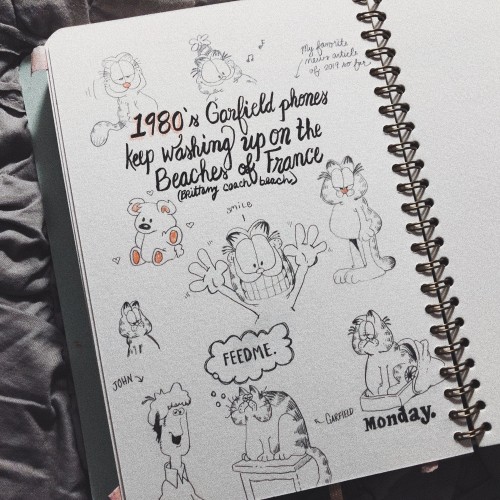 My favorite
news article
of 2019 so far
1980's Garfield phones
keep washing up on the
Beaches of France
(Brittany coach beach)
SMILE
FEEDME.
JOHN
GARFIELD
Monday.